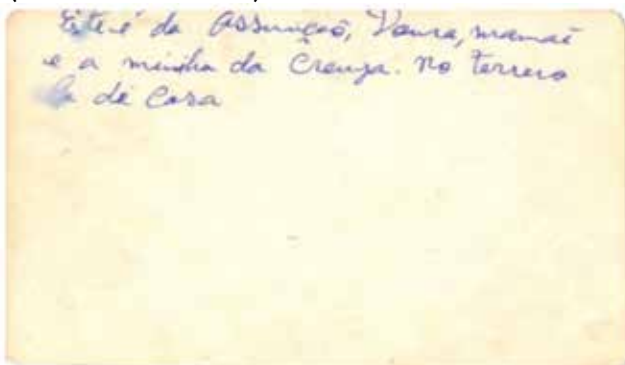 Este é da Assunção, Vaura, mamãe
e a minha da Crença. no terrero
de Casa